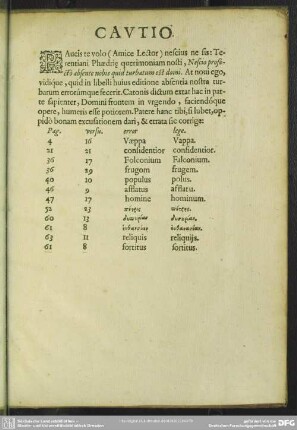 CAVTIO.
PAucis te volo (Amice Lector) nescius ne sis: Te-
rentiani Phædriæ querimoniam nosti, Nescio profe-
ctò absente nobis quid turbatum est domi. At noui ego,
vidique, quid in libelli huius editione absentia nostra tur-
barum errorúmque fecerit. Catonis dictum extat hac in par-
te sapienter, Domini frontem in vrgendo, faciendóque
opere, humeris esse potiorem. Patere hanc tibi, si lubet, op-
pidò bonam excusationem dari, & errata sic corrige:
Pag. versu. error lege.
4 16 Væppa Vappa.
21 21 confidentior confidentior.
36 17 Folconium Falconium.
36 29 frugom frugem.
40 10 populus polus.
46 9 afflatus afflatu.
47 17 homine hominum.
52 23
60 13
61 8
63 11 reliquis reliquijs.
61 8 fortitus sortitus.